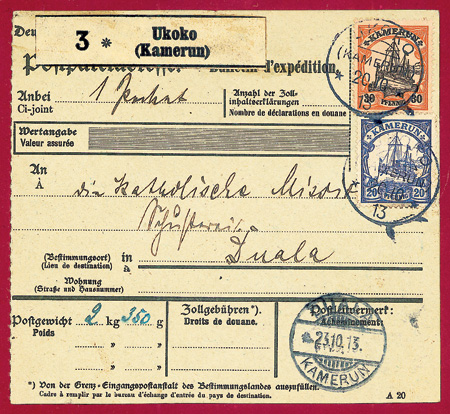 3 * Ukoko
(Kamerun)
d'expédition.
KAMERUN
30 PFENNIG 30
(KAMERUN)
20
13
Anbei
Ci-joint
1 Packet
Anzahl der Zoll-
inhaltserklärungen
Nombre de déclarations en douane
Wertangabe
Valeur assurée
KAMERUN
20 20
13
An
À
die katholische Mission
Duala
(Bestimmungsort)
(Lieu de destination)
in
à
Wohnung
(Straße und Hausnummer)
Postgewicht
Poids
2 kg 350 g
" "
" "
Zollgebühren*).
Droits de douane.
DUALA
23.10.13.
KAMERUN
*) Von der Grenz-Eingangspostanstalt des Bestimmungslandes auszufüllen.
Cadre à remplir par le bureau d'échange d'entrée du pays de destination.
A 20